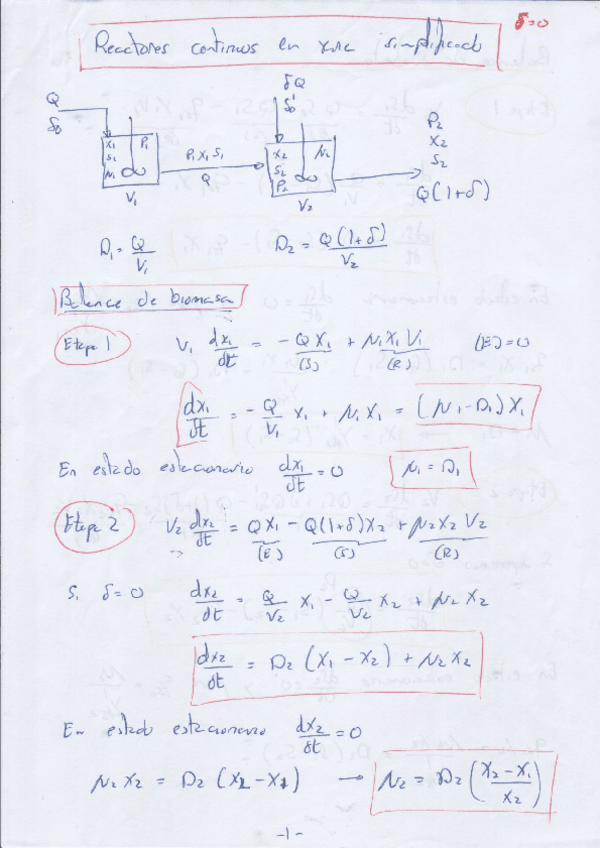 δ=0
Reactores continuos en serie (simplificado)
Q
S₀
X₁ P₁
S₁
μ₁
V₁
P₁ X₁ S₁
Q
δQ
S₀'
X₂ μ₂
S₂
P₂
V₂
P₂
X₂
S₂
Q(1+δ)
D₁ = Q/V₁ D₂ = Q(1+δ)/V₂
Balance de biomasa
Etapa 1 V₁ dx₁/dt = -QX₁ + μ₁X₁V₁ (E)=0
(S) (R)
dx₁/dt = -Q/V₁ X₁ + μ₁X₁ = (μ₁-D₁)X₁
En estado estacionario dx₁/dt = 0 μ₁ = D₁
Etapa 2 V₂ dx₂/dt = QX₁ - Q(1+δ)X₂ + μ₂X₂V₂
(E) (S) (R)
Si δ=0 dx₂/dt = Q/V₂ X₁ - Q/V₂ X₂ + μ₂X₂
dx₂/dt = D₂(X₁-X₂) + μ₂X₂
En estado estacionario dx₂/dt = 0
μ₂X₂ = D₂(X₂-X₁) → μ₂ = D₂((X₂-X₁)/X₂)
-1-